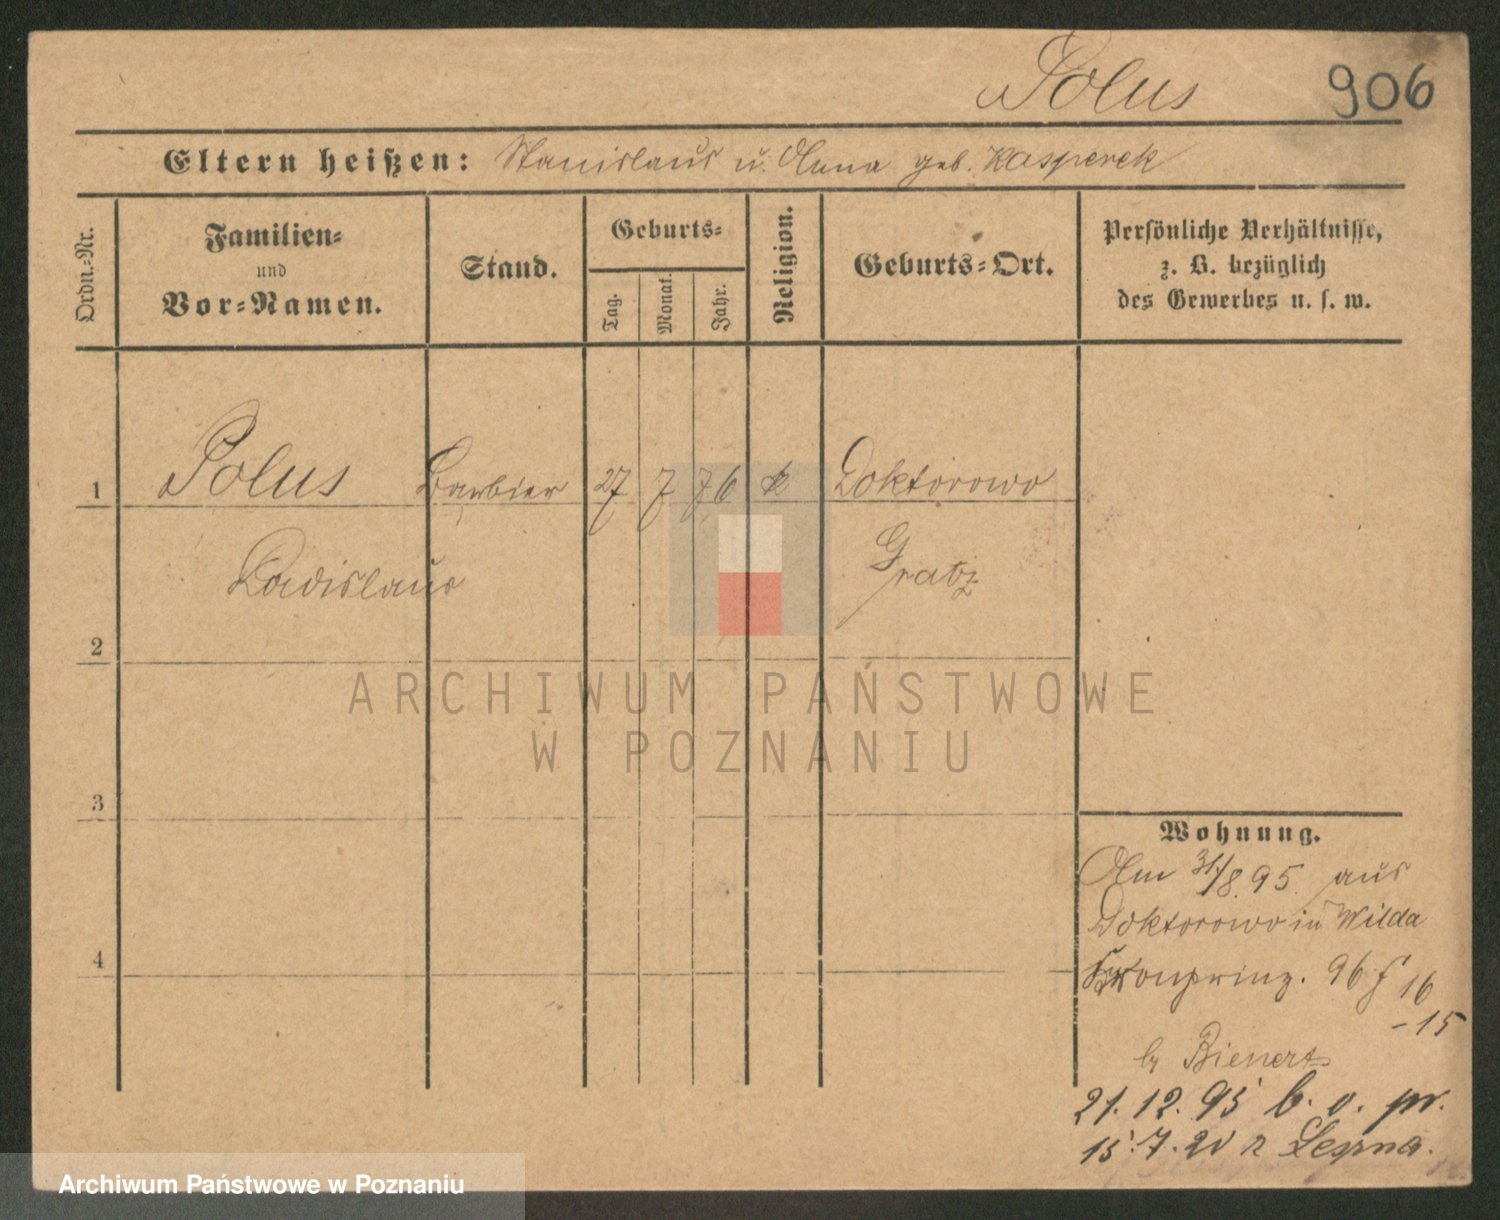 Polus 906
Eltern heißen: Stanislaus u. Anna geb. Kasperek
Ordn.-Nr.
Familien-
und
Vor-Namen.
Stand.
Geburts-
Tag.
Monat.
Jahr.
Religion.
Geburts-Ort.
Persönliche Verhältnisse,
z. B. bezüglich
des Gewerbes u. s. w.
1 Polus Barbier 27 7 76 k Doktorowo
Ladislaus Gratz
2
3
4
ARCHIWUM PAŃSTWOWE
W POZNANIU
Wohnung.
Am 31/8. 95. aus
Doktorowo in Wilda
Kronprinz. 96 f 16
-15
b. Bienert
21. 12. 95 b. o. pr.
15. 7. 20
Archiwum Państwowe w Poznaniu